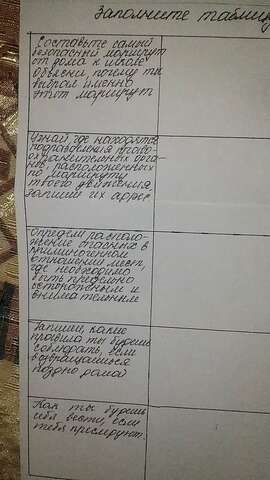 Заполните таблиц
Составьте самый
безопасный маршрут
от дома к школе
Объясни, почему ты
выбрал именно
этот маршрут
Узнай где находятся
подразделения право-
охранительных орга-
нов, расположенных
по маршруту
твоего движения,
запиши их адрес
Определи располо-
жение опасных в
криминогенном
отношении мест,
где необходимо
быть предельно
осторожным и
внимательным
Запиши, какие
правила ты будешь
соблюдать, если
возвращаешься
поздно домой
Как ты будешь
себя вести, если
тебя преследуют.